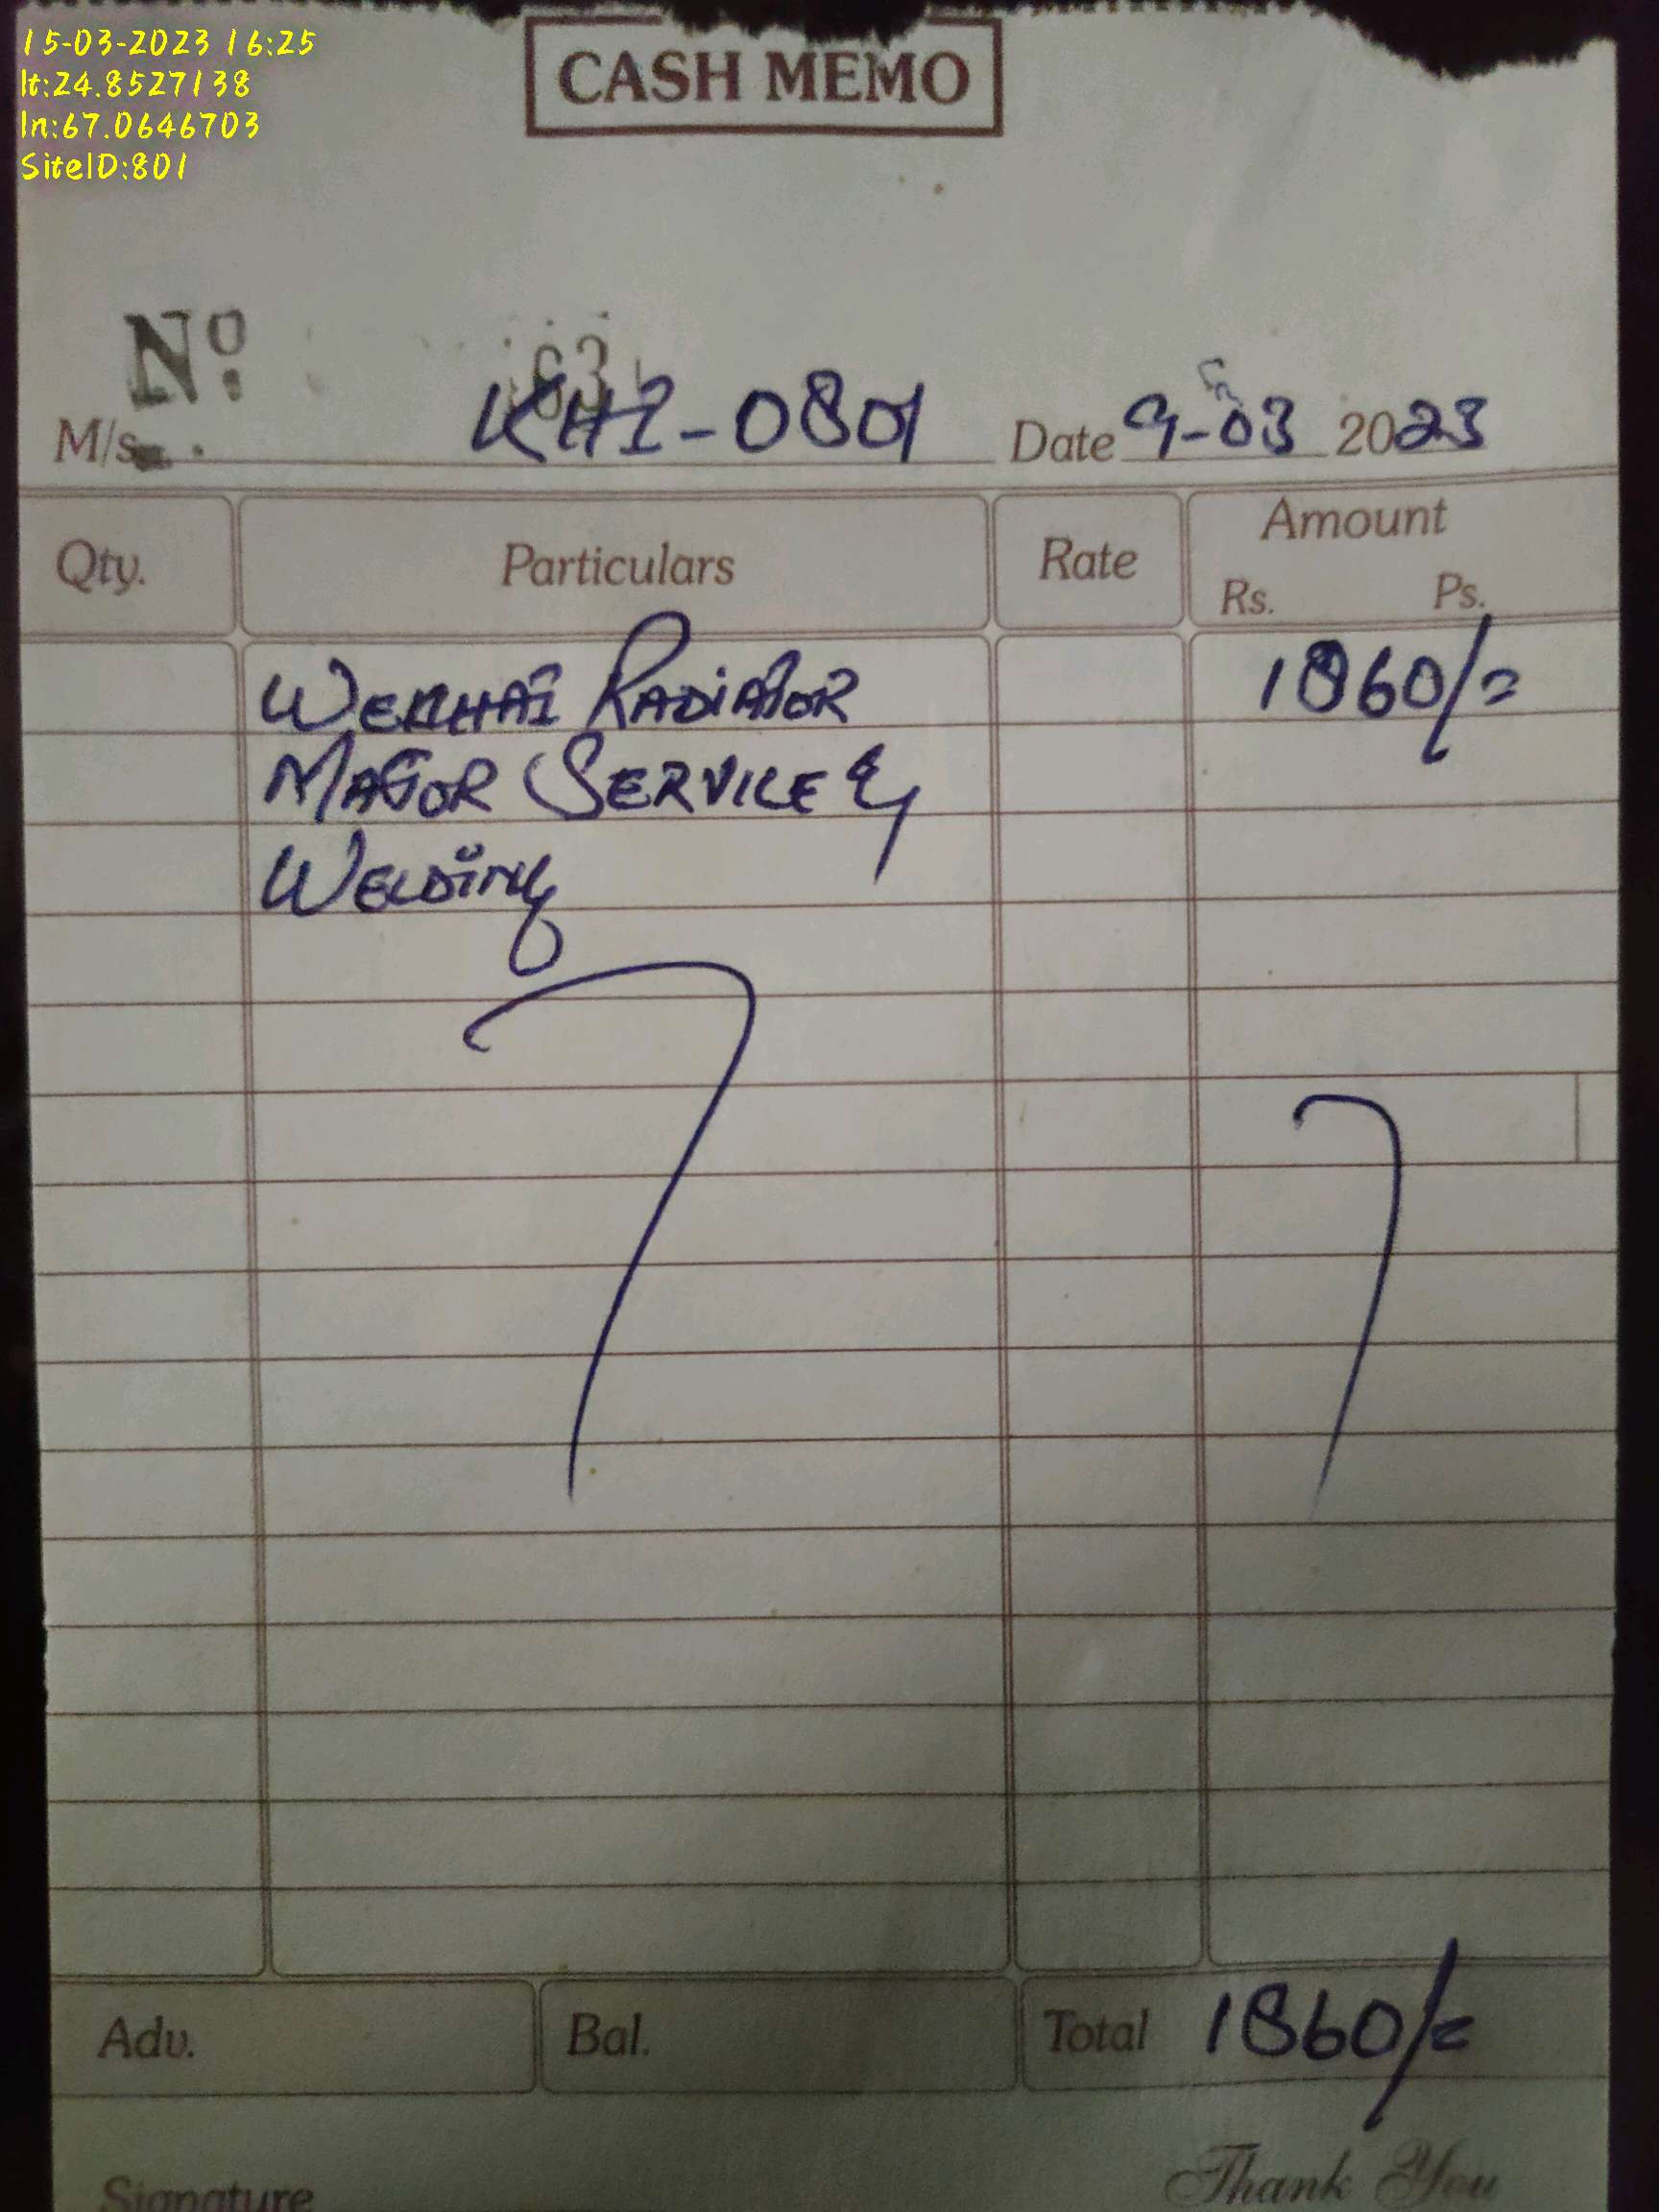 15-03-2023 16:25
lt:24.8527138
ln:67.0646703
SiteID:801
CASH MEMO
Nº
M/s. KHI-0801 Date 9-03 2023
Qty. Particulars Rate Amount
Rs. Ps.
WEICHAI RADIATOR 1860/=
MAJOR SERVICE &
WELDING
Adv. Bal. Total 1860/=
Signature Thank You